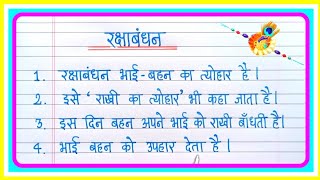 रक्षाबंधन
1. रक्षाबंधन भाई-बहन का त्योहार है।
2. इसे ‘राखी का त्योहार’ भी कहा जाता है।
3. इस दिन बहन अपने भाई को राखी बाँधती है।
4. भाई बहन को उपहार देता है।